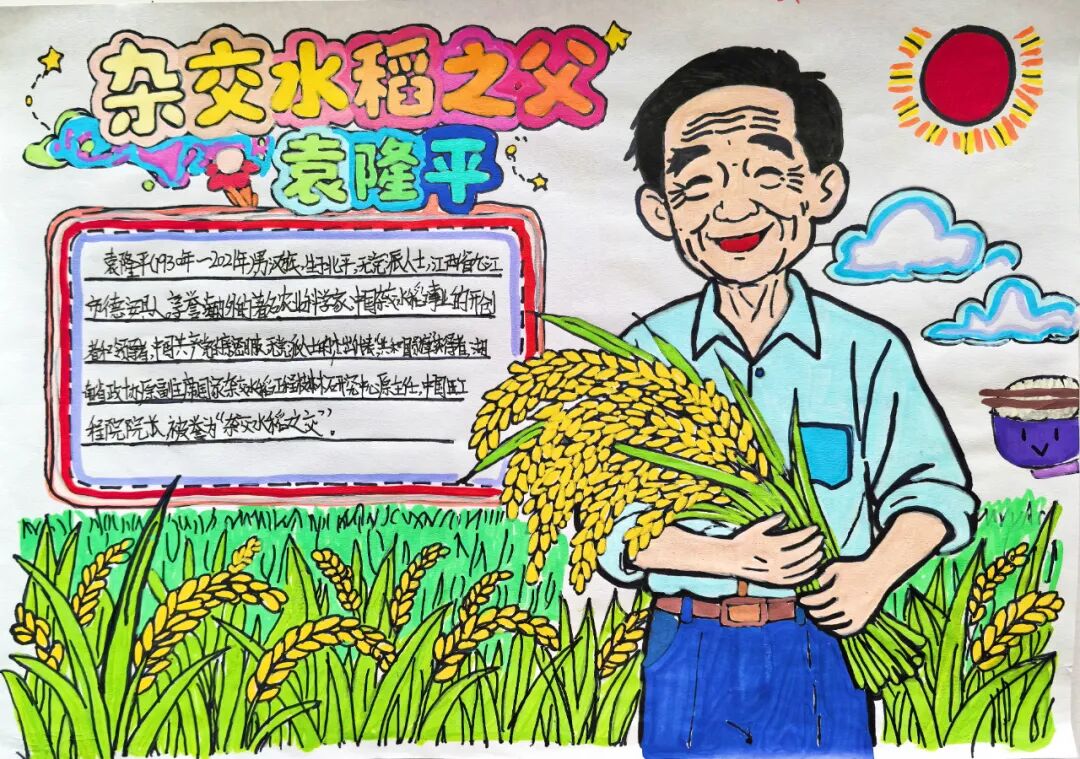 杂交水稻之父
袁隆平
袁隆平(1930年—2021年)男,汉族,生于北平,无党派人士,江西省九江
市德安县人,享誉海内外的著名农业科学家,中国杂交水稻事业的开创
者和领导者,中国共产党的亲密朋友,无党派人士的杰出代表,共和国勋章获得者,湖
南省政协原副主席,国家杂交水稻工程技术研究中心原主任,中国工
程院院士,被誉为“杂交水稻之父”。